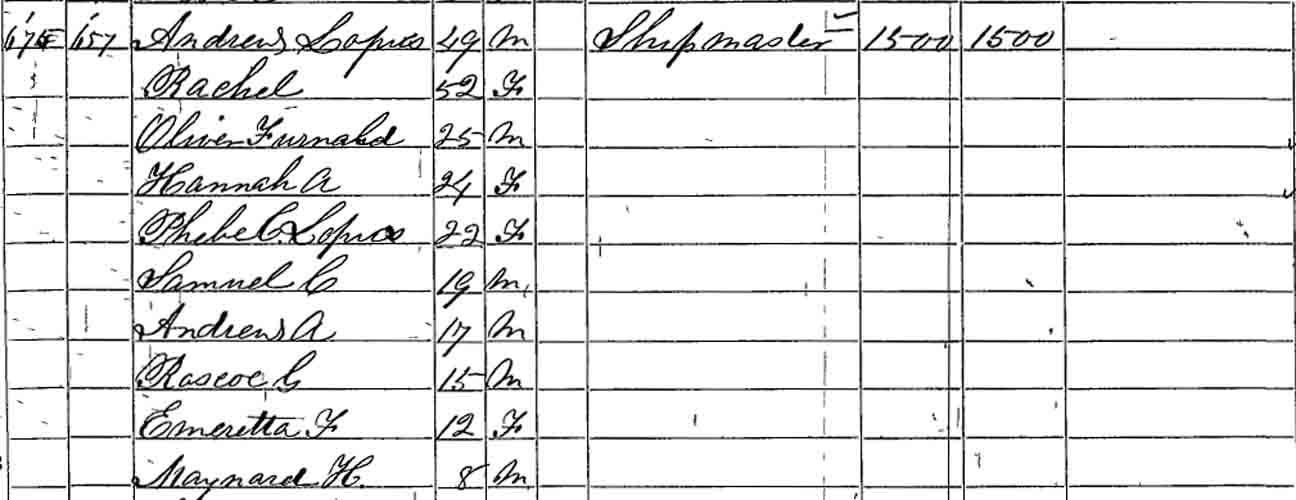 657 Andrews Lopaus 49 M Shipmaster 1500 1500
Rachel 52 F
Oliver Furnald 25 M
Hannah A 24 F
Phebe C. Lopaus 22 F
Samuel C 19 M
Andrews A 17 M
Roscoe G 15 M
Emeretta F 12 F
Maynard H. 8 M